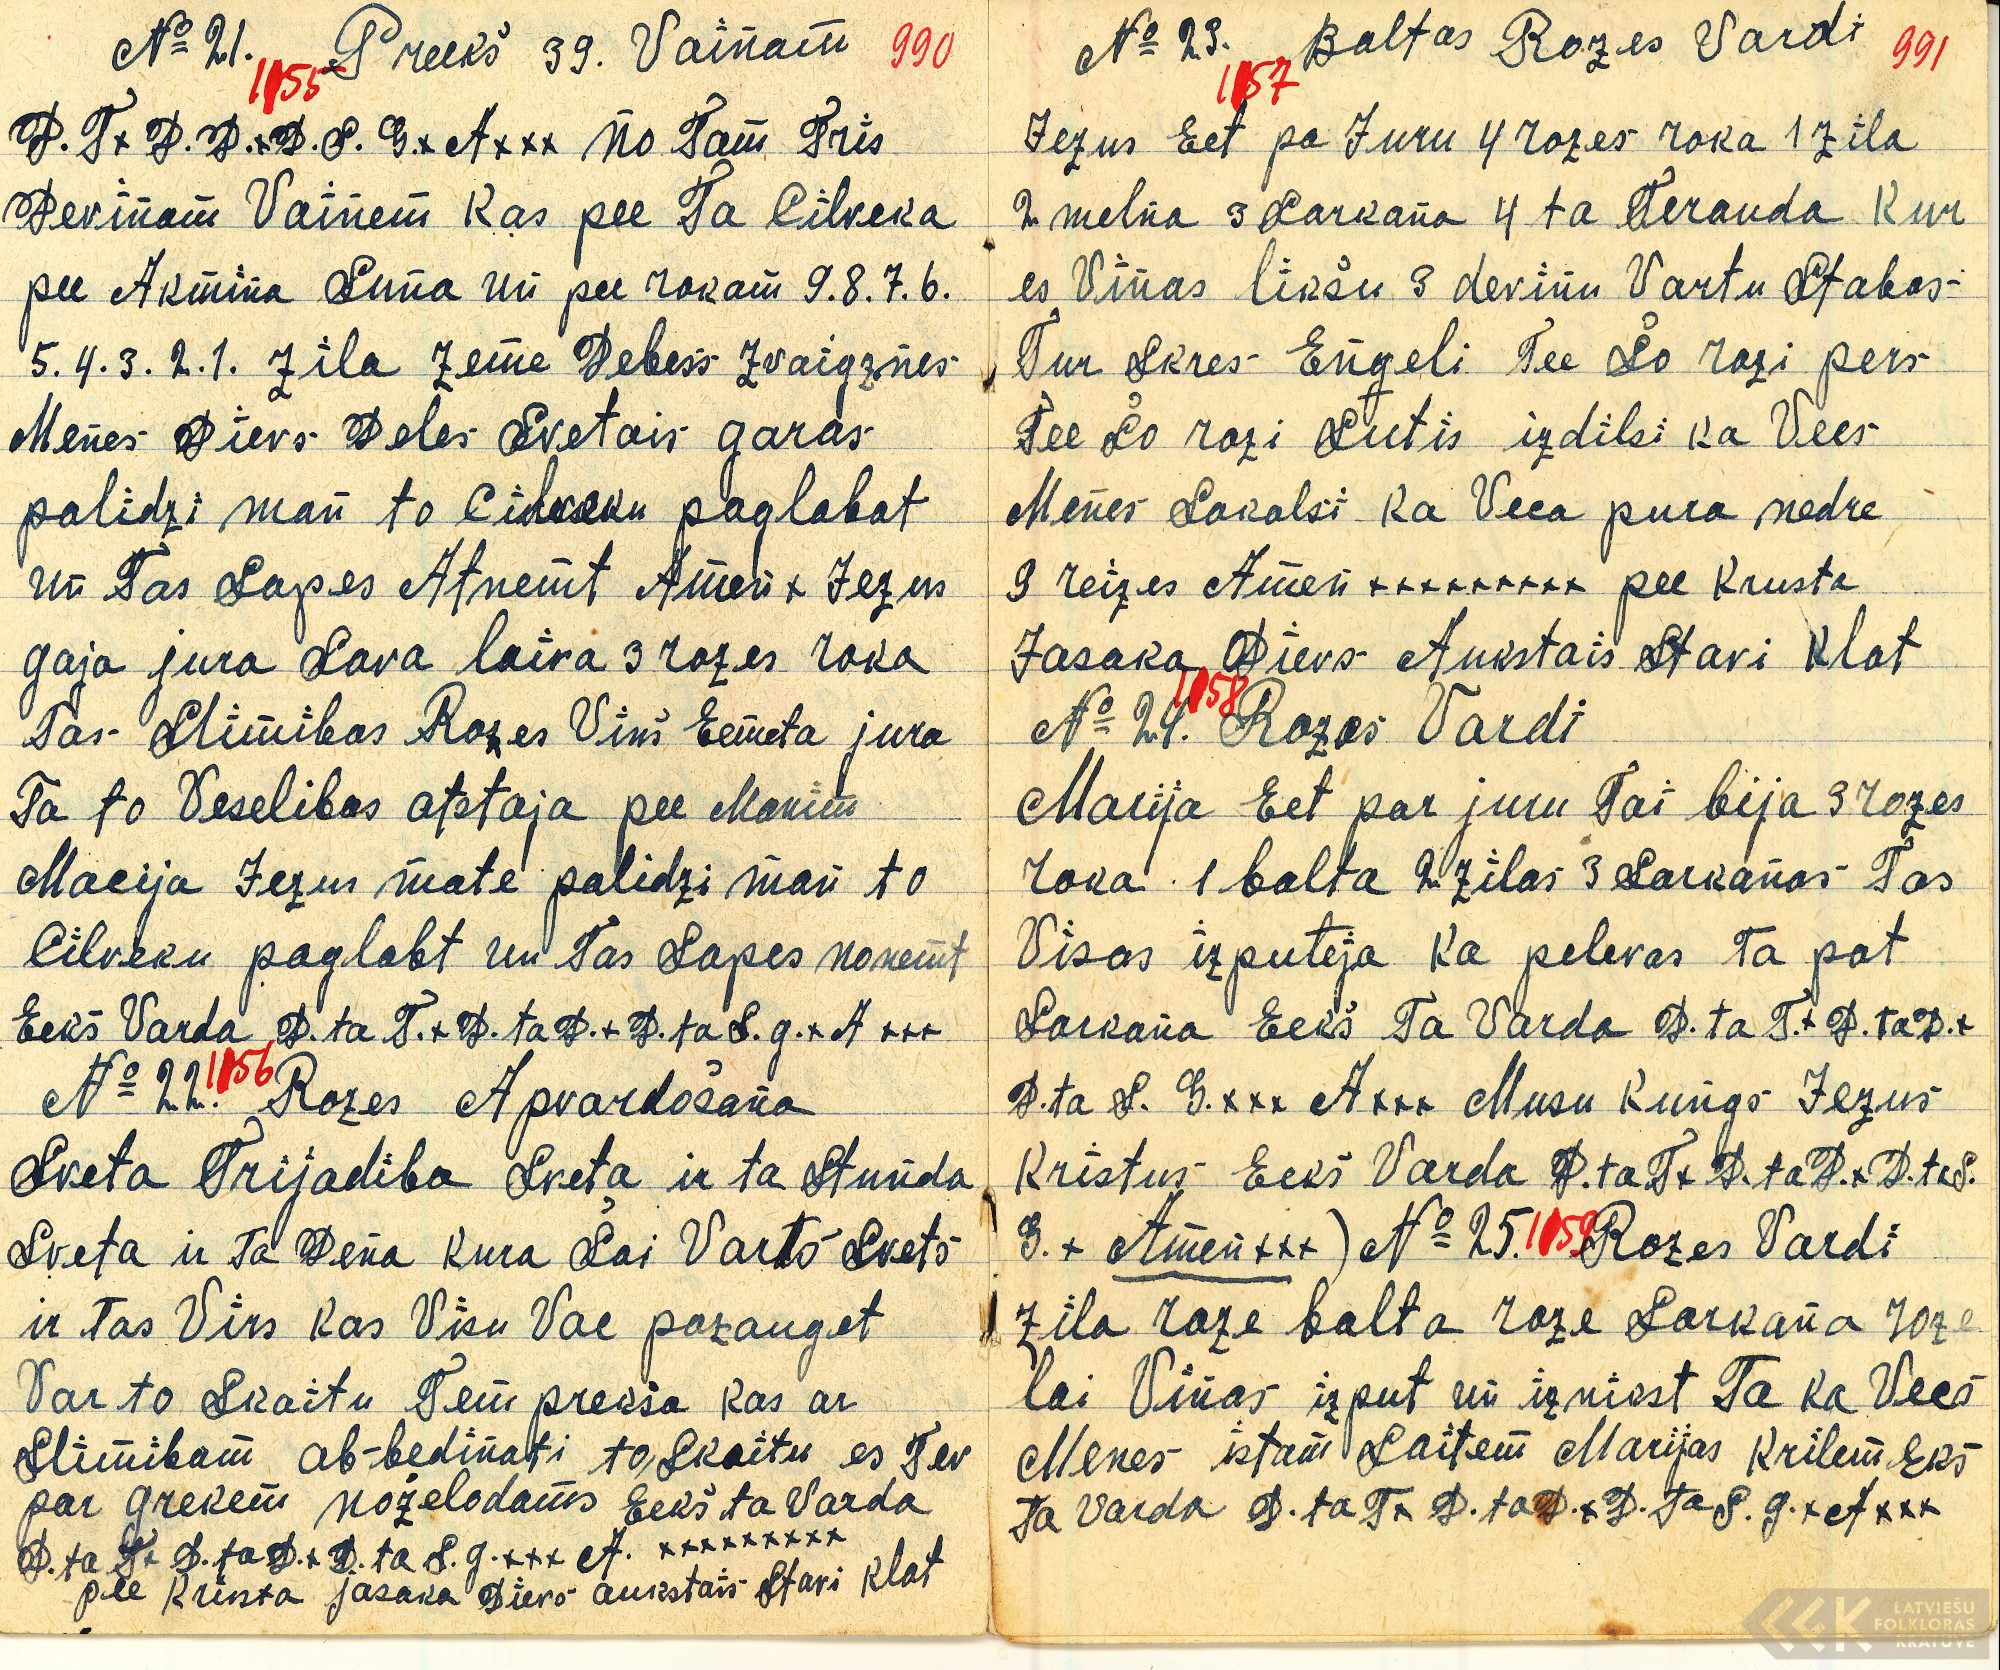 No 21. Preekš 39. Vaiñam̄ 990
1155
D. T+ D. D.+D. S. G.+ A+++ ño Tam̄ Tris
Deviñam̄ Vaiñem̄ Kas pee Ta Cilveka
pee Akm̄iña Suña uñ pee rokam̄ 9.8.7.6.
5.4.3.2.1. Zila Zem̄e Debess Zvaigzñes
Meñes Dievs Deles Svetais garas
palidzi mañ to Cilveku paglabat
uñ Tas Sapes Atnem̄t Am̄eñ + Jezus
gaja jura Sava laiva 3 rozes roka
Tas Slim̄ibas Rozes Viņš Eem̄eta jura
Ta to Veselibas atstaja pee Manim̄
Marija Jezus m̄ate palidzi m̄añ to
Cilveku paglabt un Tas Sapes nonem̄t
Eekš Varda D. ta T.+ D. ta D.+ D. ta S. g.+ A +++
No 22. 1156 Rozes Apvardošaña
Sveta Trijadiba Sveta ir ta Stuñda
Sveta ir Ta Deña kura Šai Varts Svets
ir Tas Virs Kas Visu Var pazauget
Var to Skaitu Tem̄ prekša kas ar
Slim̄ibam̄ ab-bediñati to Skaitu es Tev
par grekem̄ noželodam̄s Eekš ta Varda
D. ta T+ D. ta D.+ D. ta S. g.+++ A. +++++++++
pee Krusta jasaka Dievs aukstais Stavi klat
No 23. Baltas Rozes Vardi 991
1157
Jezus Eet pa Juru 4 rozes roka 1 Zila
2 melña 3 Sarkaña 4 ta Teranda Kur
es Viñas likšu 3 deviñu Vartu Stabos
Tur Skres Eñgeli Tee Šo rozi pers
Tee Šo rozi Šutis izdilsi ka Vees
Meñes Sakalsi ka Veca pura nedre
9 reizes Am̄eñ +++++++++ pee Krusta
Jasaka Dievs Aukstais Stavi Klat
1158
No 24. Rozes Vardi
Marija Eet par juru Tai bija 3 rozes
roka 1 balta 2 Zilas 3 Sarkañas Tas
Visas izputeja Ka pelevas Ta pat
Sarkaña Eekš Ta Varda D. ta T.+ D. ta D.+
D. ta S. G.+++ A+++ Musu Kuñgs Jezus
Kristus Eekš Varda D. ta T+ D. ta D.+ D. ta S.
G.+ Am̄eñ+++) No 25. 1159 Rozes Vardi
Zila roze balta roze Sarkaña roze
lai Viñas izput uñ iznikst Ta ka Vecs
Menes istam̄ Saitem̄ Marijas Krilem̄ Ekš
Ta Varda D. ta T+ D. ta D.+ D. Ta S. g.+ A+++
LATVIEŠU
FOLKLORAS
KRĀTUVE